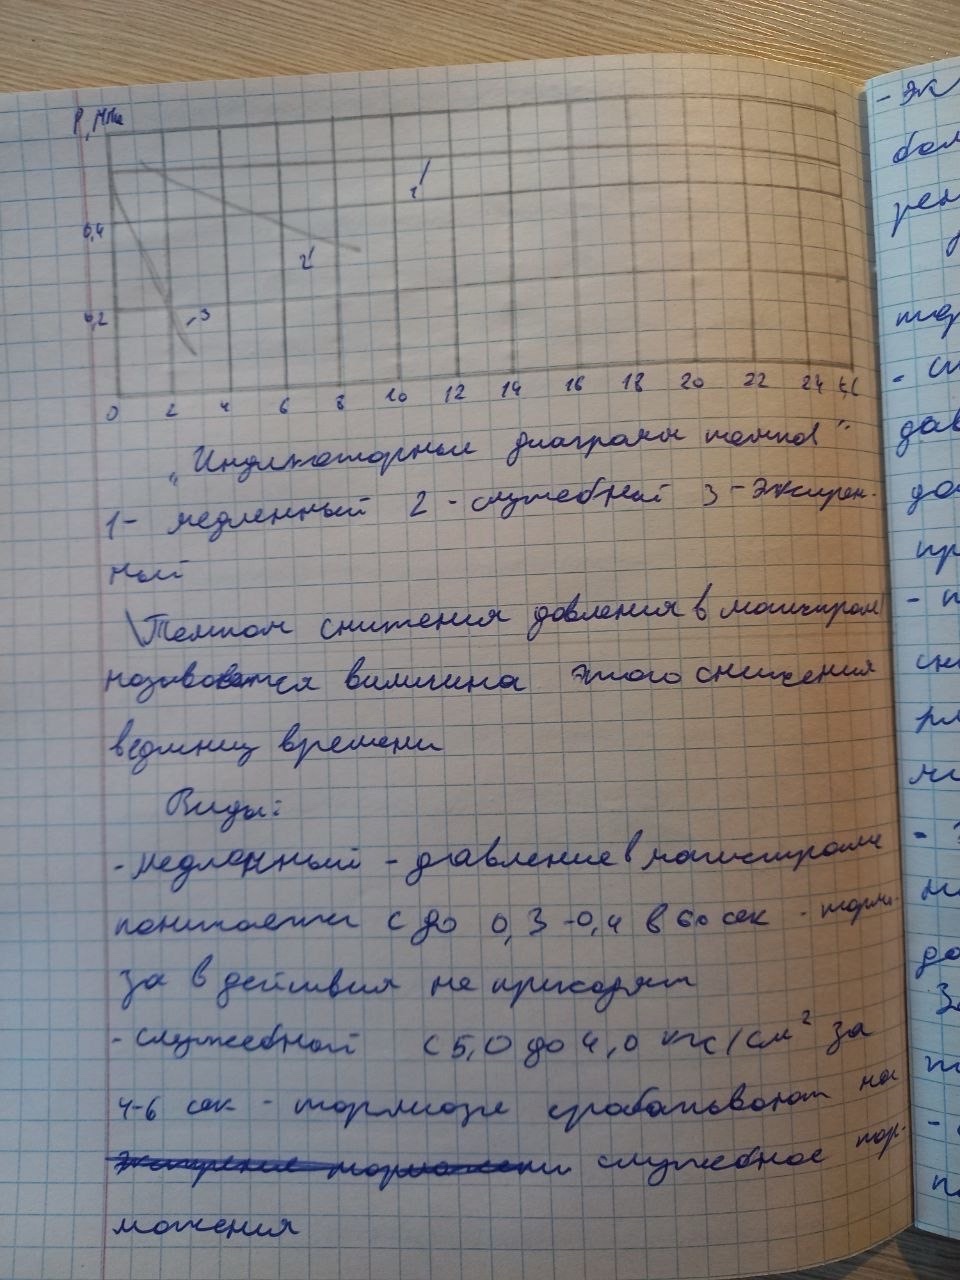 P, МПа
1
0,4
2
0,2
3
0 2 4 6 8 10 12 14 16 18 20 22 24 t,c
"Индикаторные диаграммы темпов"
1- медленный 2 - служебный 3 - Экстрен-
ный
Темпом снижения давления в магистрали
называется величина этого снижения
в единиц времени
Виды:
- медленный - давление в магистрали
понижается с до 0,3 -0,4 в 60 сек - торма-
за в действия не приходят
- служебной с 5,0 до 4,0 кгс/см² за
4-6 сек - тормоза срабатывают на
служебное тор-
можения
- эк